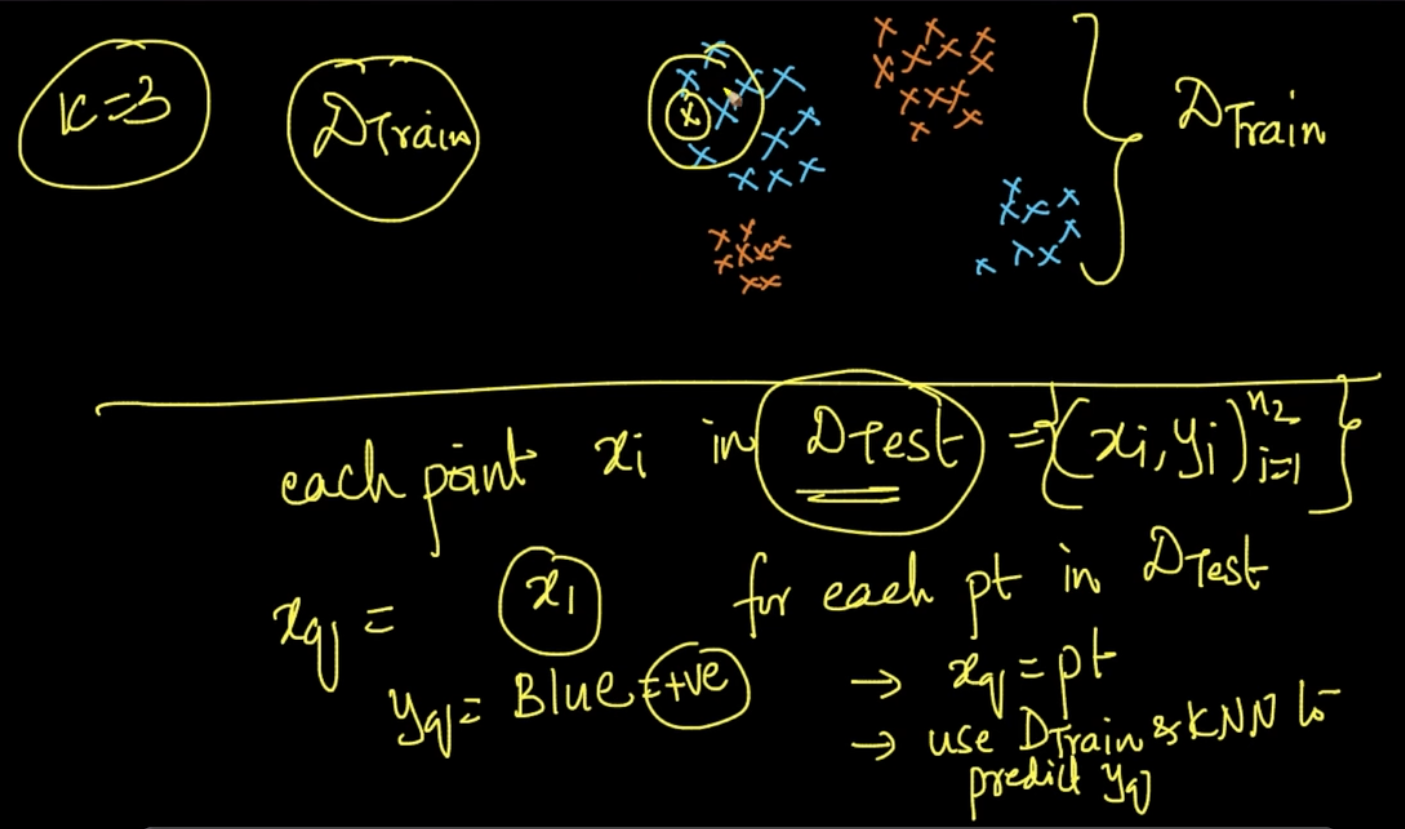 K=3
DTrain
DTrain
each point xi in DTest = {(xi, yi)^n2 i=1}
xq = x1
for each pt in DTest
→ xq = pt
yq = Blue = +ve
→ use DTrain & KNN to
predict yq